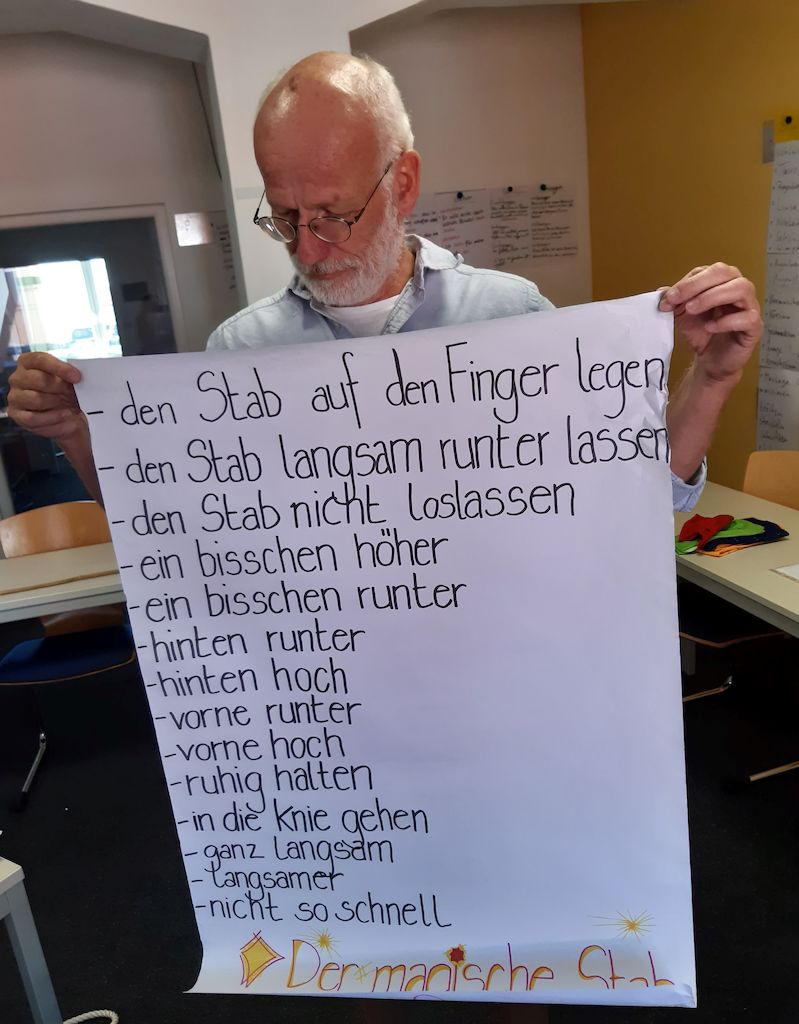 - den Stab auf den Finger legen
- den Stab langsam runter lassen
- den Stab nicht loslassen
- ein bisschen höher
- ein bisschen runter
- hinten runter
- hinten hoch
- vorne runter
- vorne hoch
- ruhig halten
- in die Knie gehen
- ganz langsam
- langsamer
- nicht so schnell
Der magische Stab